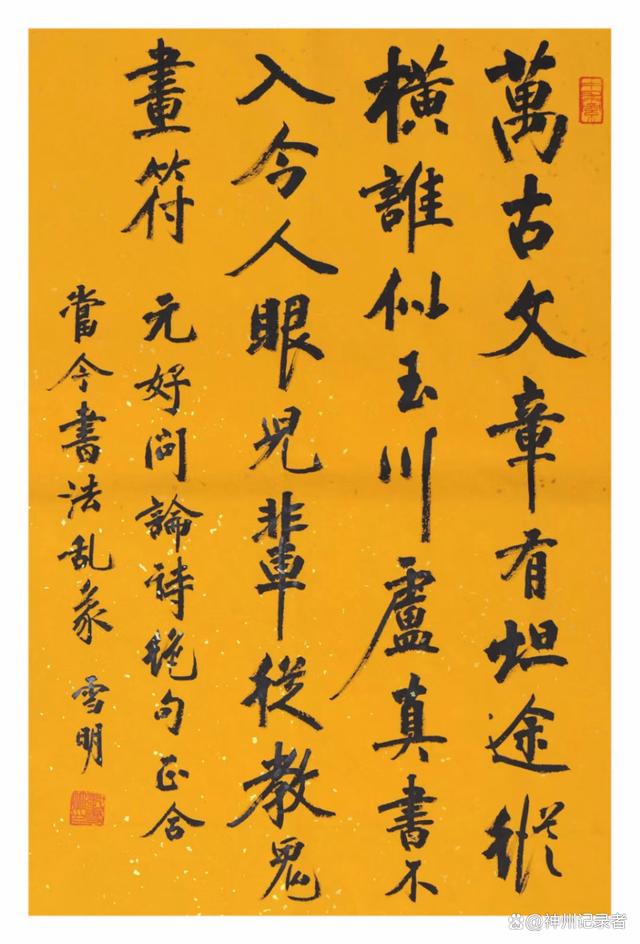 萬古文章有坦途縱
橫誰似玉川盧真書不
入今人眼兒輩從教鬼
畫符
元好問論詩絶句正合
當今書法乱象 雪明
@神州记录者